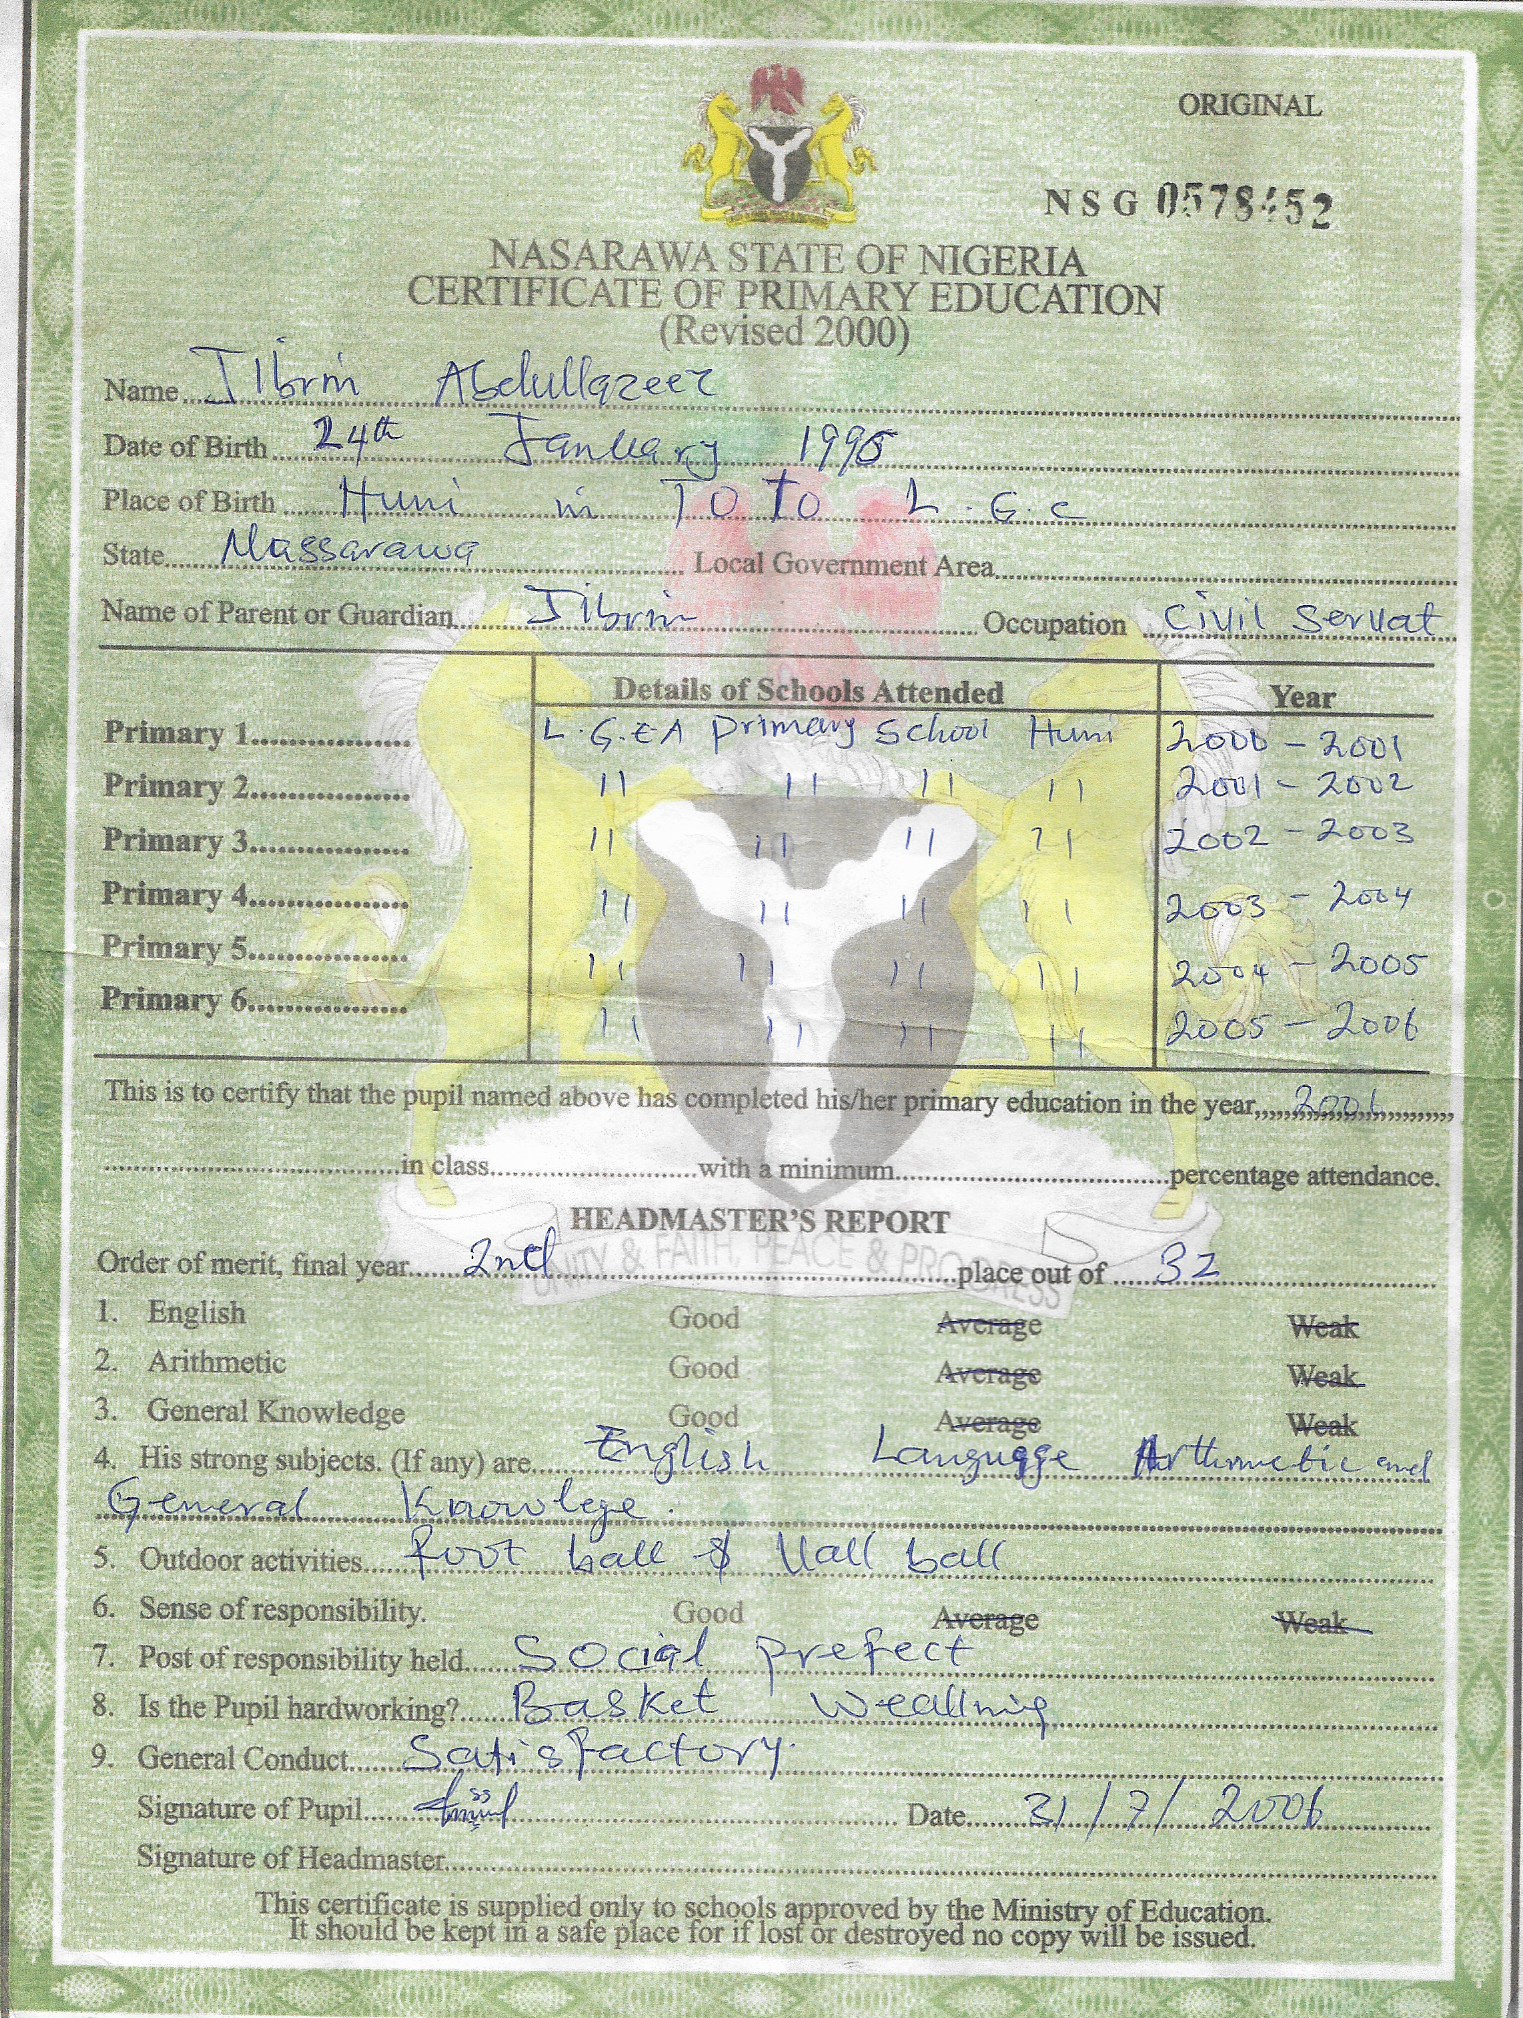 ORIGINAL
NSG 0578452
NASARAWA STATE OF NIGERIA
CERTIFICATE OF PRIMARY EDUCATION
(Revised 2000)
Name Jibrin Abdullazeez
Date of Birth 24th January 1995
Place of Birth Huni in TOTO L.G.C
State Nassarawa Local Government Area
Name of Parent or Guardian Jibrin Occupation Civil Servat
Details of Schools Attended Year
Primary 1 L.G.E.A primary School Huni 2000 - 2001
Primary 2 " " " " 2001 - 2002
Primary 3 " " " " 2002 - 2003
Primary 4 " " " " 2003 - 2004
Primary 5 " " " " 2004 - 2005
Primary 6 " " " " 2005 - 2006
This is to certify that the pupil named above has completed his/her primary education in the year 2006
in class with a minimum percentage attendance.
HEADMASTER'S REPORT
UNITY & FAITH PEACE & PROGRESS
Order of merit, final year 2nd place out of 32
1. English Good Average Weak
2. Arithmetic Good Average Weak
3. General Knowledge Good Average Weak
4. His strong subjects. (If any) are English Language Arthmetic and
General Knowlege.
5. Outdoor activities foot ball & Vall ball
6. Sense of responsibility. Good Average Weak
7. Post of responsibility held Social prefect
8. Is the Pupil hardworking? Basket
9. General Conduct Satisfactory.
Signature of Pupil Date 31/7/2006
Signature of Headmaster
This certificate is supplied only to schools approved by the Ministry of Education.
It should be kept in a safe place for if lost or destroyed no copy will be issued.